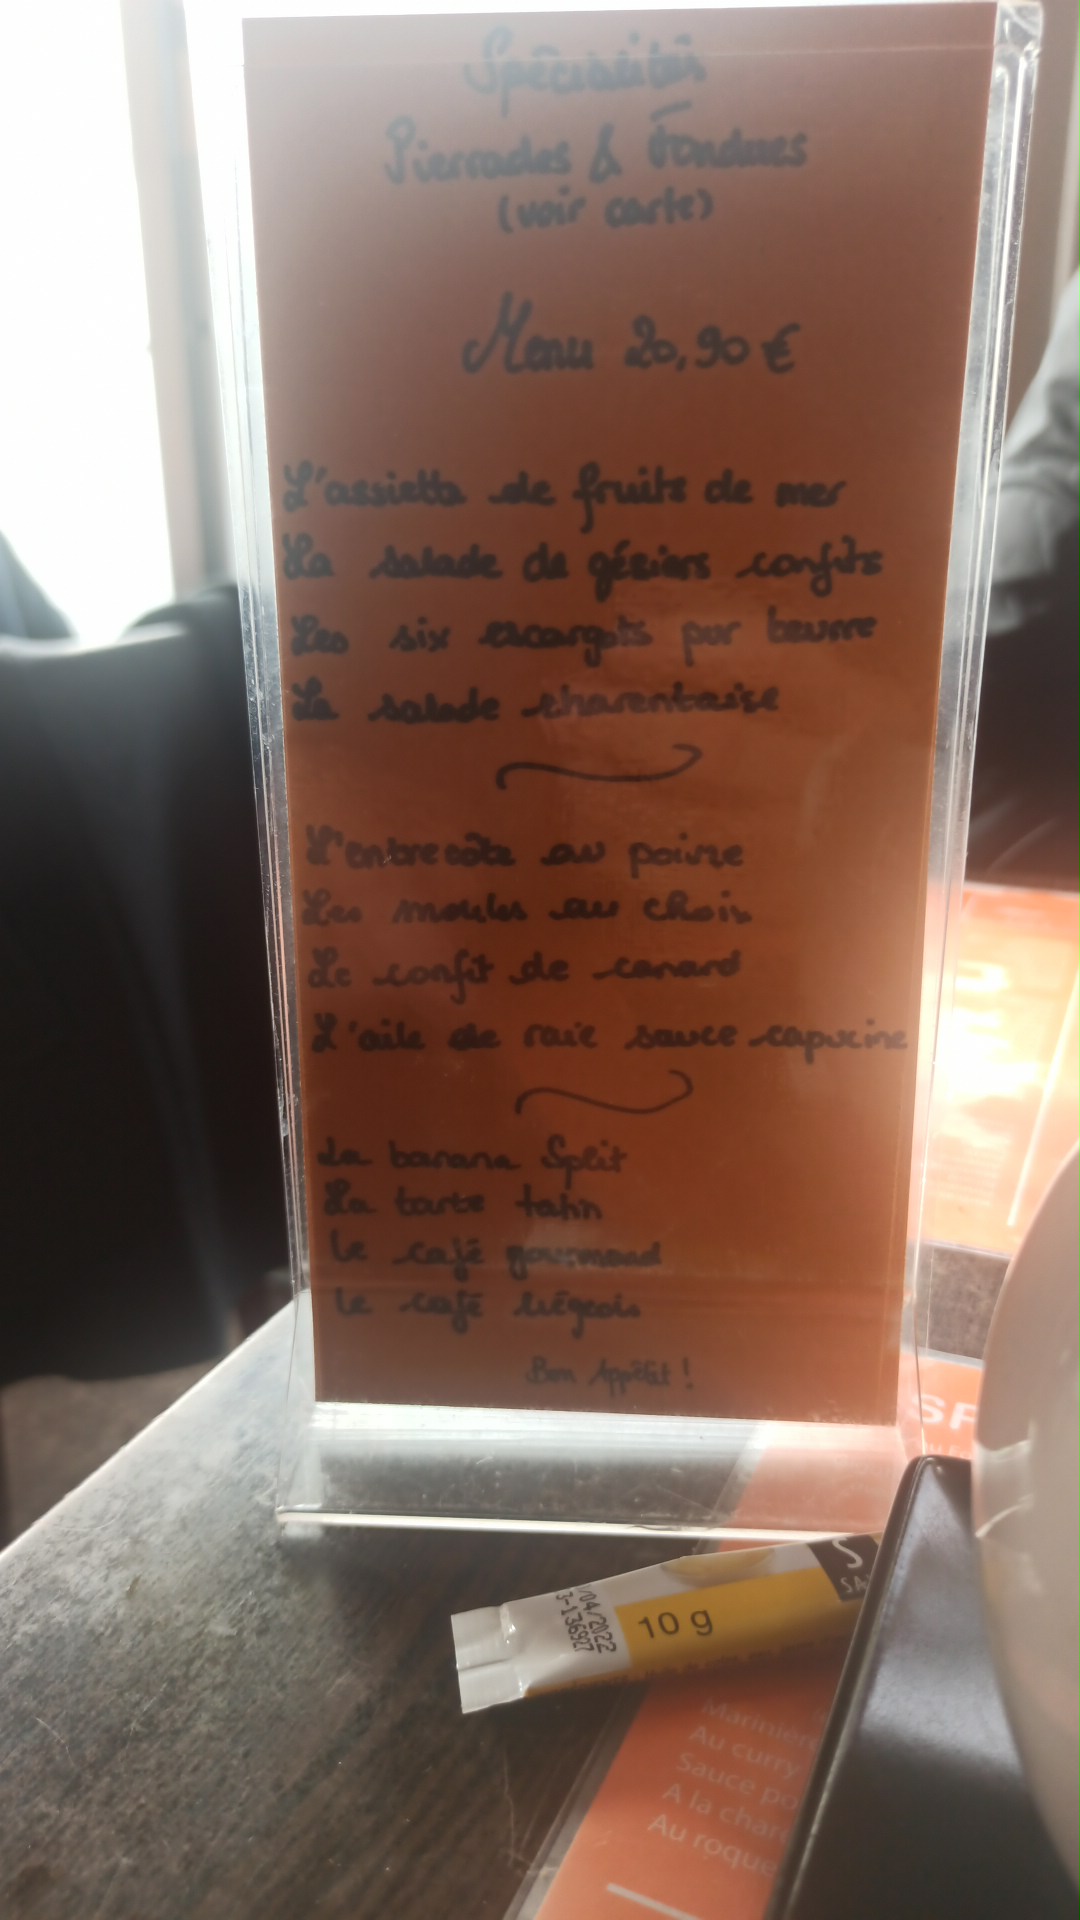 Spécialités
Pierrades & Fondues
(voir carte)
Menu 20,90 €
L'assiette de fruits de mer
La salade de gésiers confits
Les six escargots pur beurre
La salade charentaise
L'entrecôte au poivre
Les moules au choix
Le confit de canard
L'aile de raie sauce capucine
La banana Split
La tarte tatin
Le café gourmand
Le café liégeois
Bon Appétit !
SP
/04/2022
3-136927
10 g
S
SA
Marinière
Au curry
Sauce po
A la char
Au roque